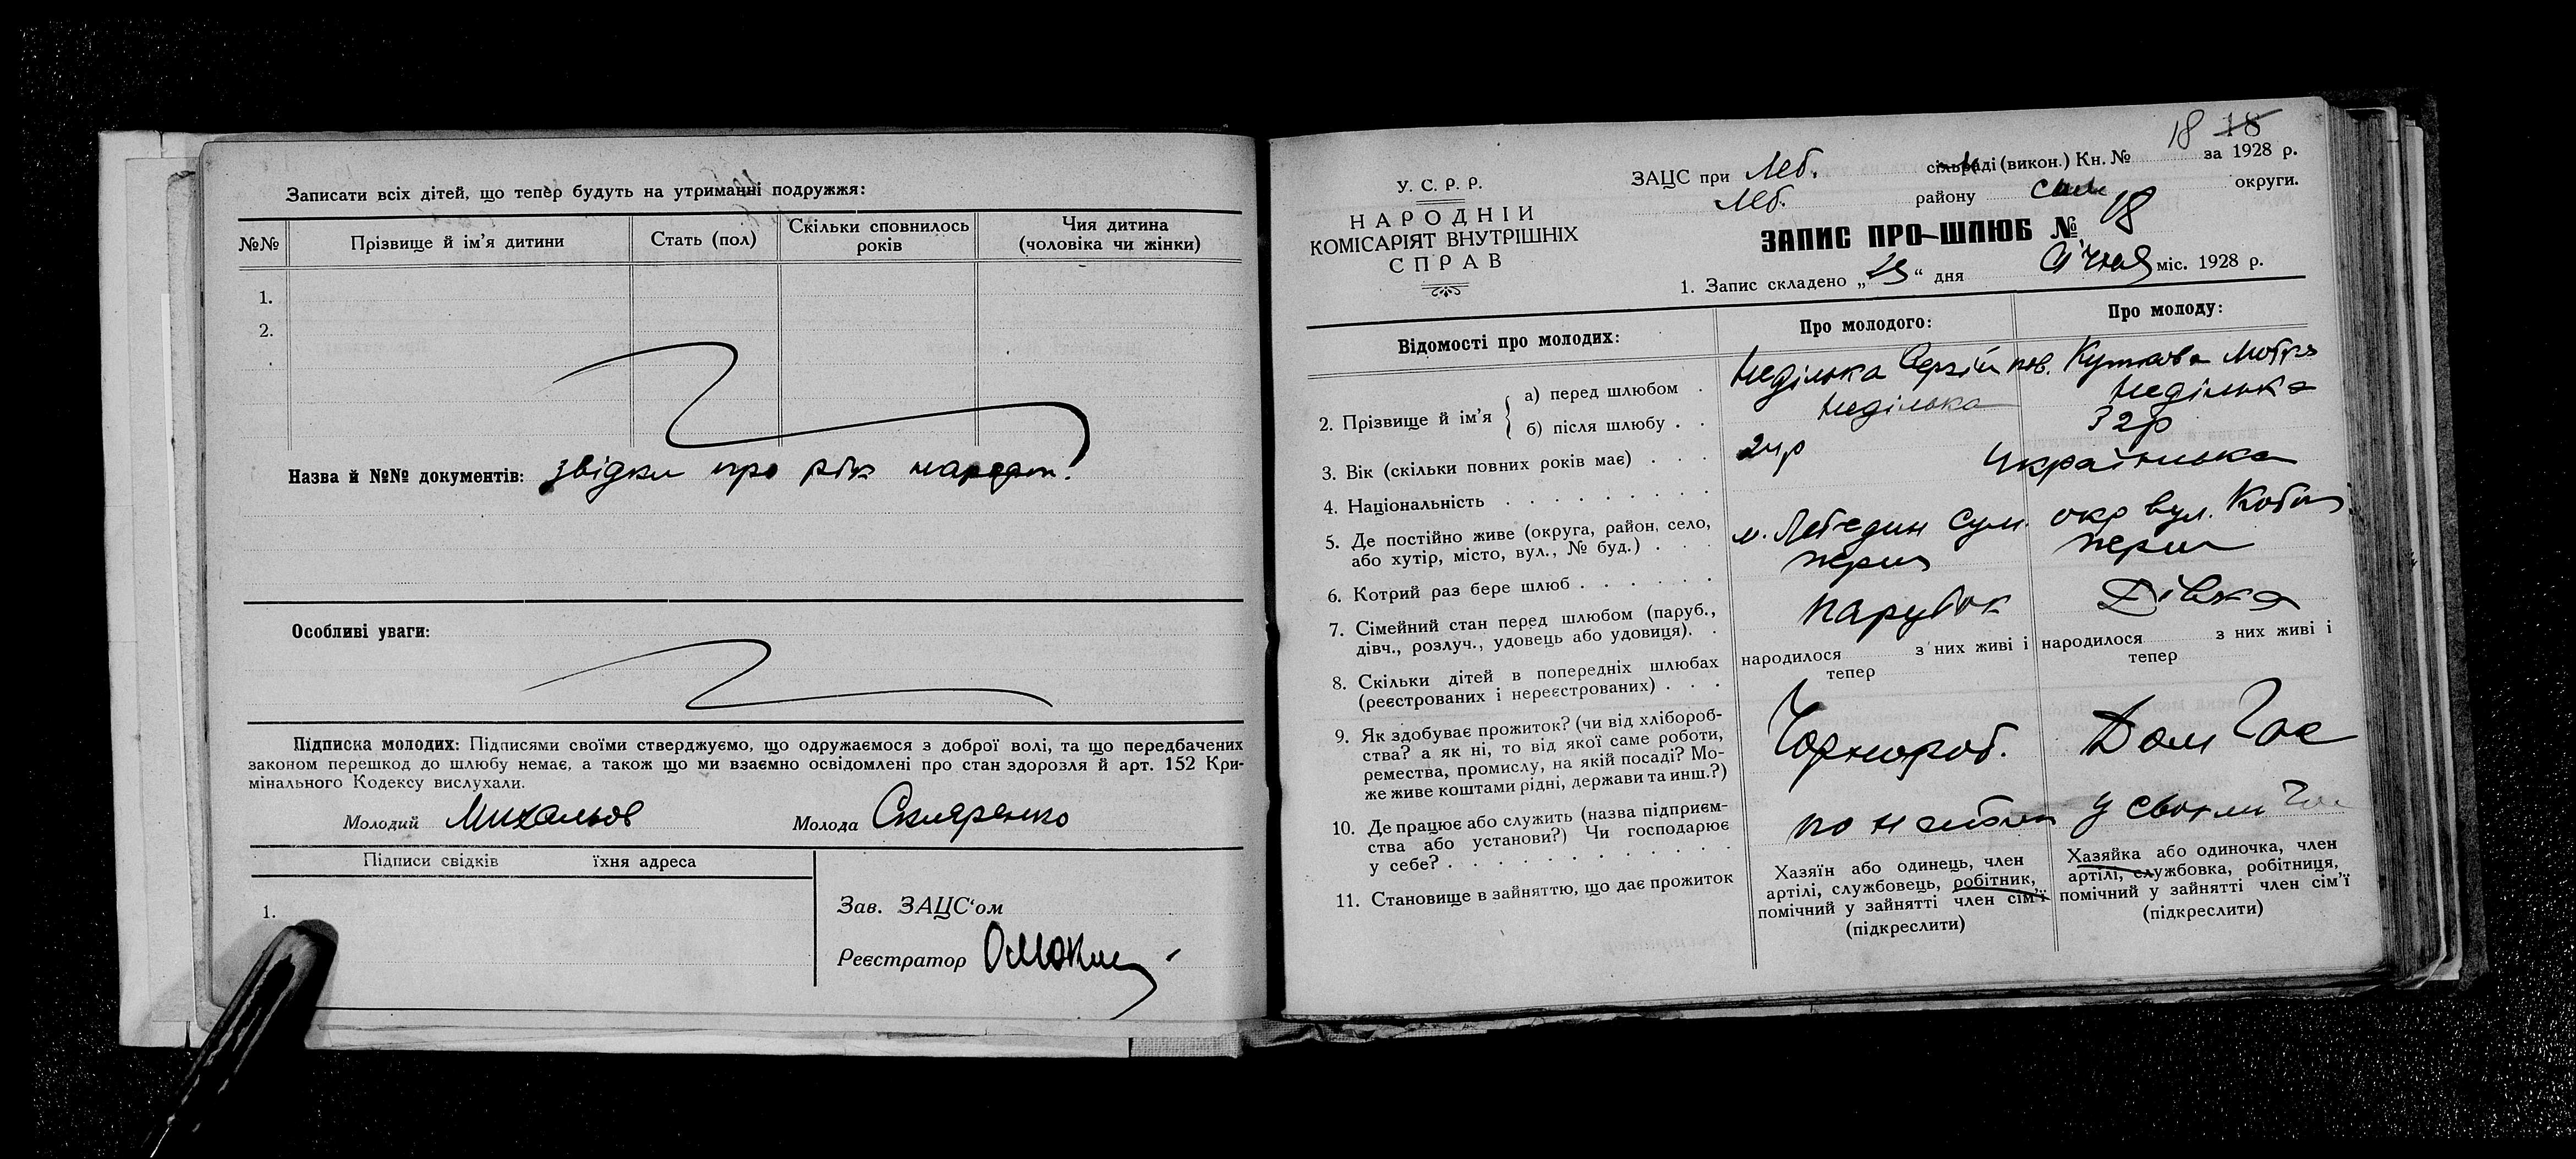 Записати всіх дітей, що тепер будуть на утриманні подружжя:
№№ Прізвище й ім'я дитини Стать (пол) Скільки сповнилось років Чия дитина (чоловіка чи жінки)
1.
2.
Назва й №№ документів: звідки про рік народж.
Особливі уваги:
Підписка молодих: Підписами своїми стверджуємо, що одружаємося з доброї волі, та що передбачених
законом перешкод до шлюбу немає, а також що ми взаємно освідомлені про стан здоровля й арт. 152 Кри-
мінального Кодексу вислухали.
Молодий Михальов Молода Скляренко
Підписи свідків їхня адреса
1.
Зав. ЗАЦС'ом
Реєстратор
18 18
У. С. Р. Р.
НАРОДНІЙ
КОМІСАРІЯТ ВНУТРІШНІХ
СПРАВ
ЗАЦС при Леб. сільраді (викон.) Кн. № за 1928 р.
Леб. району Сум округи.
ЗАПИС ПРО ШЛЮБ № 18
1. Запис складено „ “ дня Січня міс. 1928 р.
Відомості про молодих: Про молодого: Про молоду:
2. Прізвище й ім'я
а) перед шлюбом . Неділька Сергій Мотря
б) після шлюбу . . Неділька Неділька
3. Вік (скільки повних років має) . . . 24р 32р
4. Національність . . . . . . . . . Українська
5. Де постійно живе (округа, район, село,
або хутір, місто, вул., № буд.) . . . м. Лебедин Сум. окр вул.
6. Котрий раз бере шлюб . . . . . . перш перш
7. Сімейний стан перед шлюбом (паруб.,
дівч., розлуч., удовець або удовиця). . парубок Дівка
8. Скільки дітей в попередніх шлюбах
(реєстрованих і нереєстрованих) . . .
народилося з них живі і
тепер
народилося з них живі і
тепер
9. Як здобуває прожиток? (чи від хлібороб-
ства? а як ні, то від якої саме роботи,
ремества, промислу, на якій посаді? Мо-
же живе коштами рідні, держави та инш.?)
Чорнороб. Дом Гос
10. Де працює або служить (назва підприєм-
ства або установи?) Чи господарює
у себе? . . . . . . . . . . . .
по найми у своєм
11. Становище в зайняттю, що дає прожиток
Хазяїн або одинець, член
артілі, службовець, робітник,
помічний у зайнятті член сім'ї
(підкреслити)
Хазяйка або одиночка, член
артілі, службовка, робітниця,
помічний у зайнятті член сім'ї
(підкреслити)